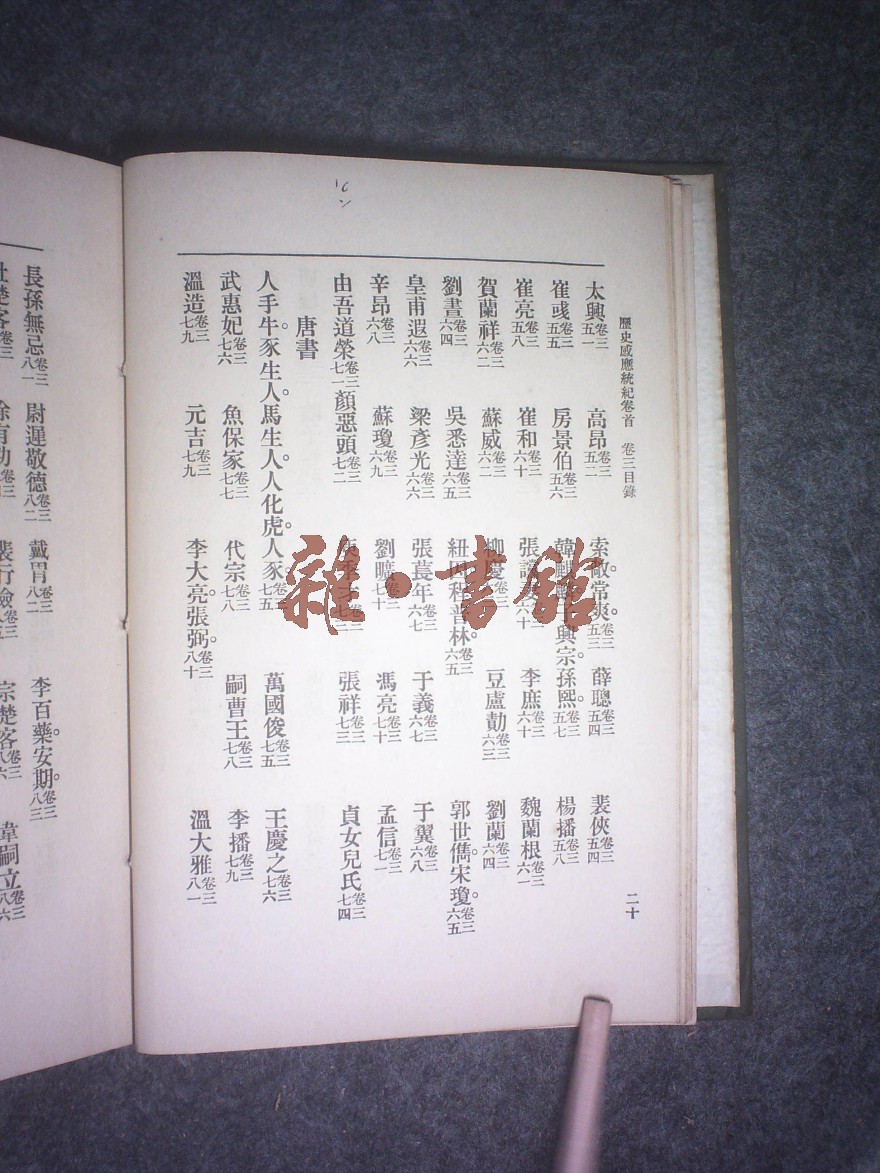 歷史感應統紀卷首 卷三目錄 二十
太興卷三五一 高昂卷三五二 索敞。常爽。卷三五三 薛聰卷三五四 裴俠卷三五四
崔彧卷三五五 房景伯卷三五六 興宗。孫熙。卷三五七 楊播卷三五八
崔亮卷三五八 崔和卷三六十 李庶卷三六十 魏蘭根卷三六一
賀蘭祥卷三六二 蘇威卷三六二 柳慶卷三 豆盧勣卷三六三 劉蘭卷三六四
劉晝卷三六四 吳悉達卷三六五 普林。卷三六五 郭世儁。宋瓊。卷三六五
皇甫遐卷三六六 梁彥光卷三六六 張萇年卷三六七 于義卷三六七 于翼卷三六八
辛昂卷三六八 蘇瓊卷三六九 劉曠卷三七十 馮亮卷三七十 孟信卷三七一
由吾道榮卷三七一 顏惡頭卷三七二 張祥卷三七三 貞女兒氏卷三七四
唐書
人手牛。豕生人。馬生人。人化虎。人豕。卷三七五 萬國俊卷三七五 王慶之卷三七六
武惠妃卷三七六 魚保家卷三七七 代宗卷三七八 嗣曹王卷三七八 李播卷三七九
溫造卷三七九 元吉卷三七九 李大亮。張弼。卷三八十 溫大雅卷三八一
長孫無忌卷三八一 尉遲敬德卷三八二 戴冑卷三八二 李百藥。安期。卷三八三
宗楚客卷三八六 韋嗣立卷三八六
雜·書館